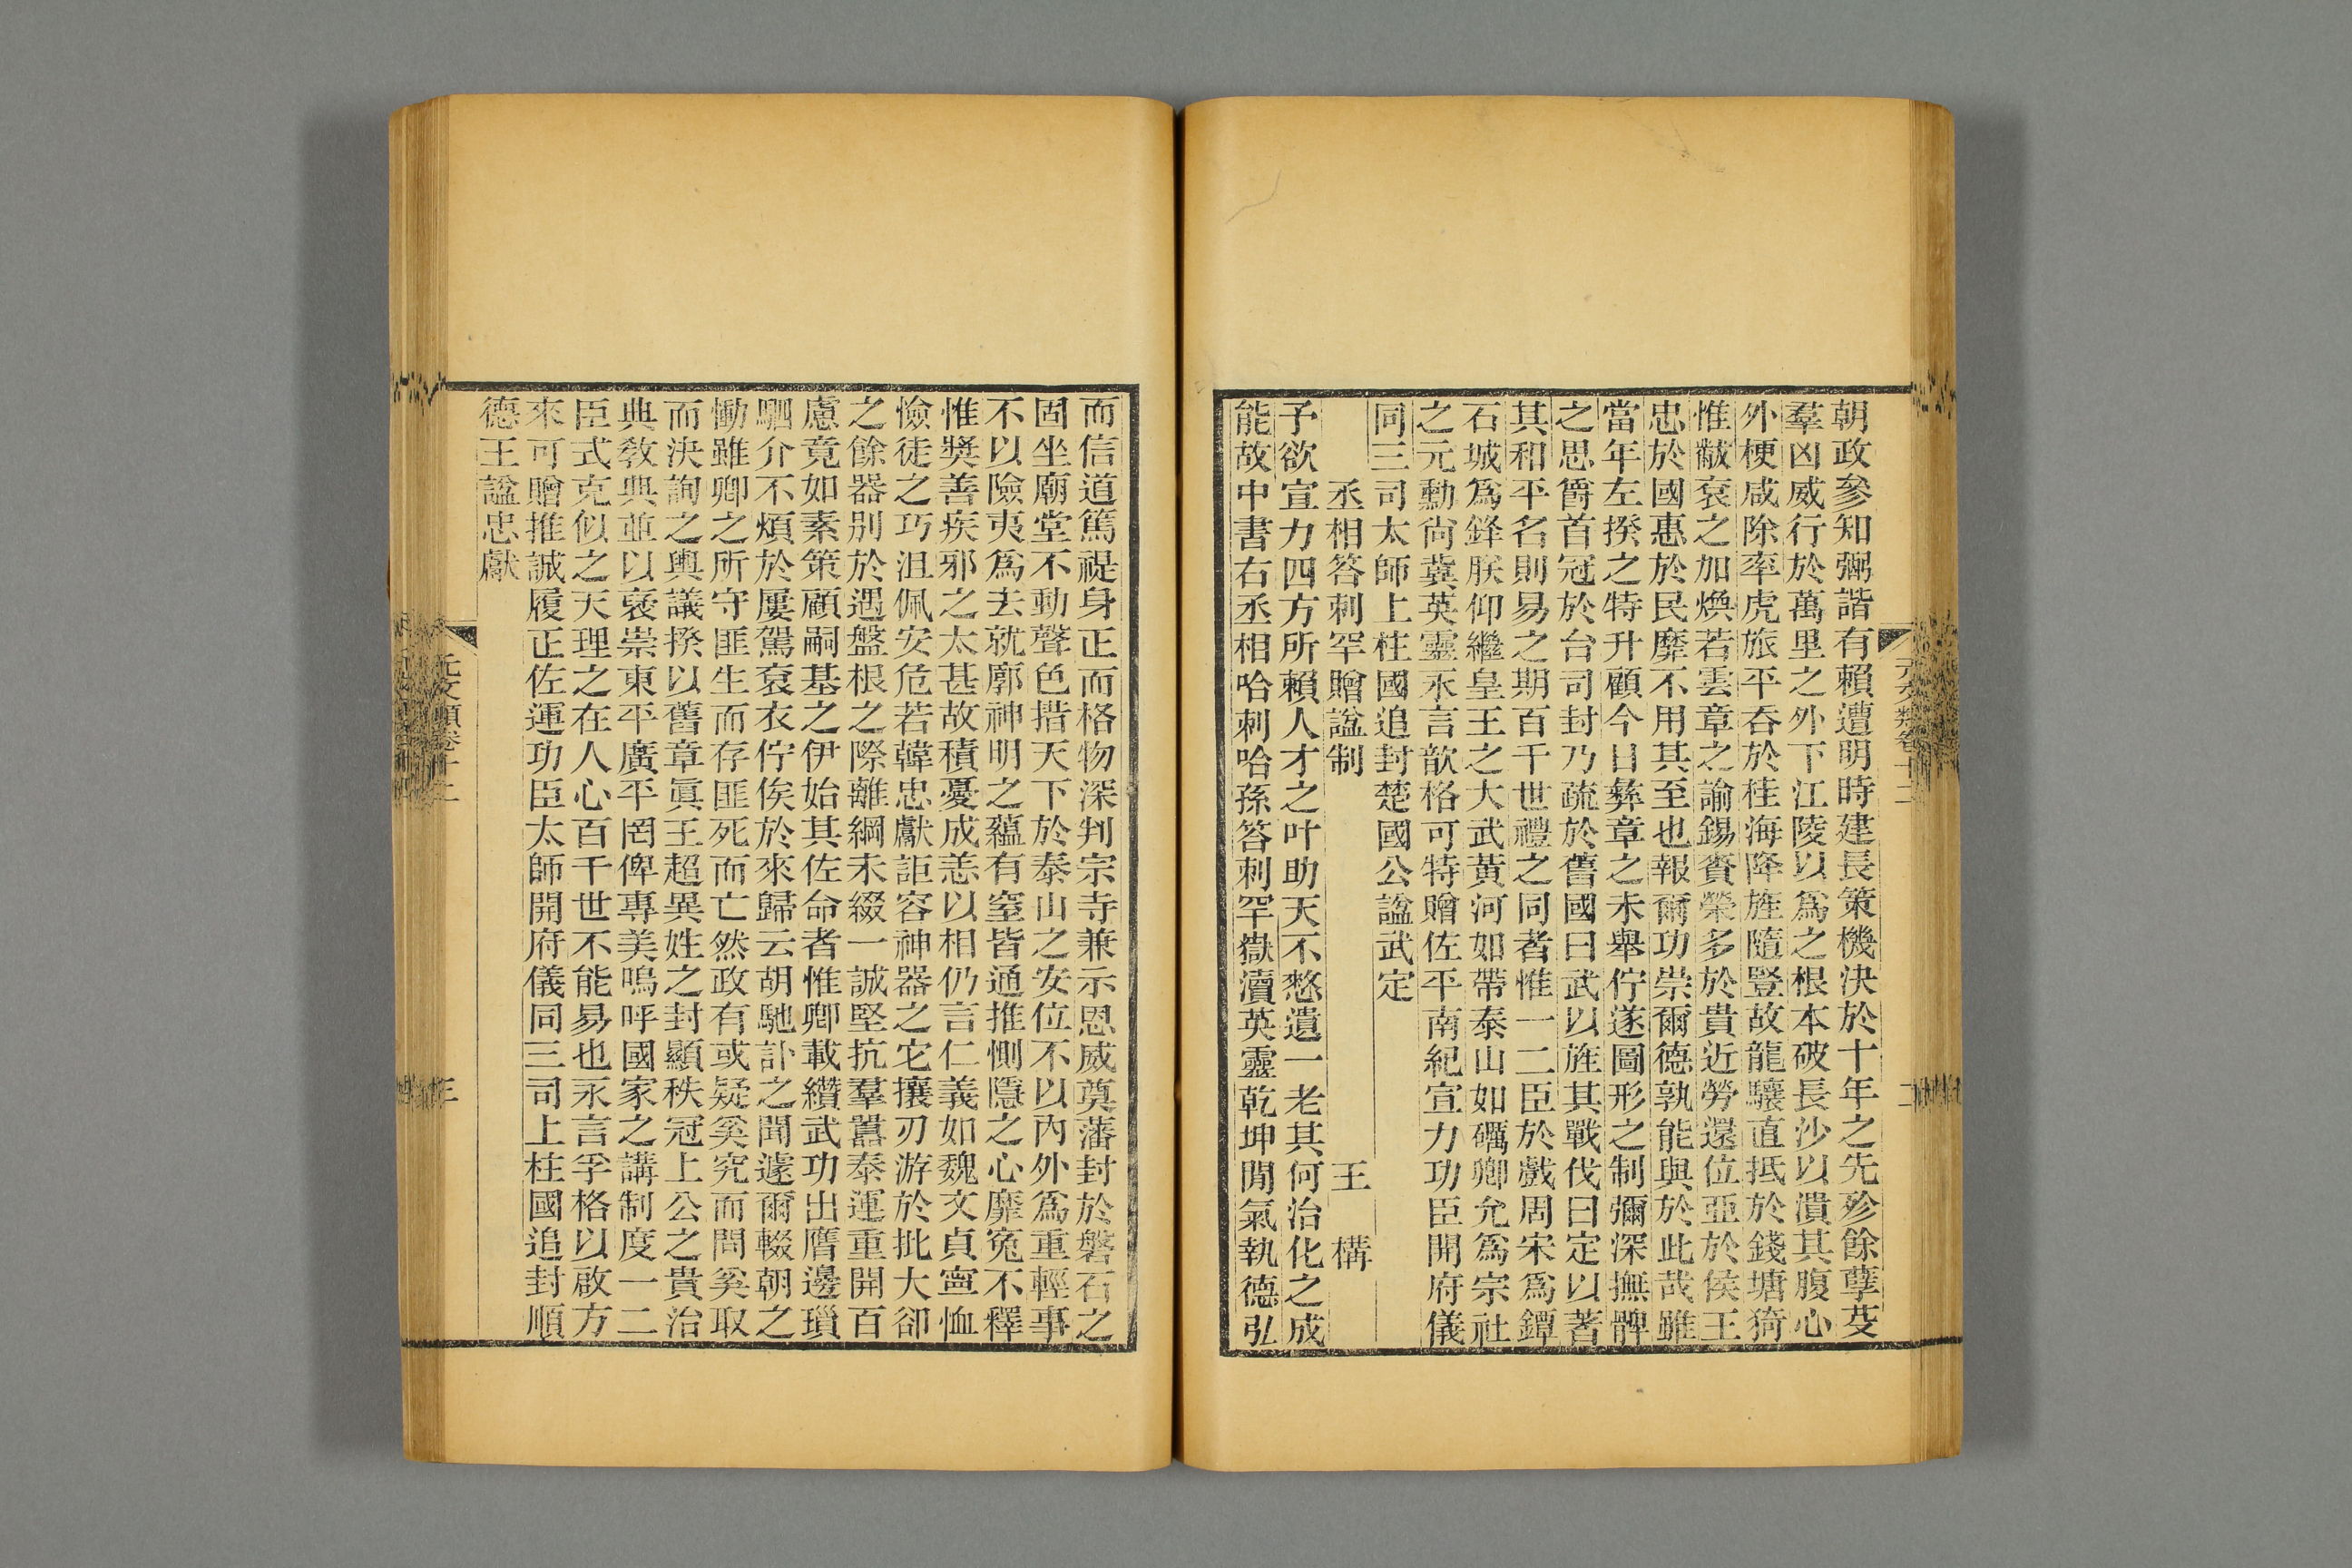 朝政參知弼諧有賴遭明時建長策機決於十年之先殄餘孽芟
羣凶威行於萬里之外下江陵以爲之根本破長沙以潰其腹心
外梗咸除率虎旅平吞於桂海降旌隨豎故龍驤直抵於錢塘猗
惟黻衮之加煥若雲章之諭錫賚榮多於貴近勞還位亞於侯王
忠於國惠於民靡不用其至也報爾功崇爾德孰能與於此哉雖
當年左揆之特升顧今日彝章之未舉佇遂圖形之制彌深撫髀
之思爵首冠於台司封乃疏於舊國曰武以旌其戰伐曰定以著
其和平名則易之期百千世禮之同者惟一二臣於戲周宋爲鐔
石城爲鋒朕仰繼皇王之大武黃河如帶泰山如礪卿允爲宗社
之元勳尙冀英靈永言歆格可特贈佐平南紀宣力功臣開府儀
同三司太師上柱國追封楚國公諡武定
丞相答刺罕贈諡制　王構
予欲宣力四方所賴人才之叶助天不憗遺一老其何治化之成
能故中書右丞相哈刺哈孫答刺罕嶽瀆英靈乾坤閒氣執德弘
元文類卷十二　二
而信道篤禔身正而格物深判宗寺兼示恩威奠藩封於磐石之
固坐廟堂不動聲色措天下於泰山之安位不以內外爲重輕事
不以險夷爲去就廓神明之蘊有窒皆通推惻隱之心靡冤不釋
惟獎善疾邪之太甚故積憂成恙以相仍言仁義如魏文貞寍恤
憸徒之巧沮佩安危若韓忠獻詎容神器之它攘刃游於批大卻
之餘器別於遇盤根之際離綱未綴一誠堅抗羣嚚泰運重開百
慮竟如素策顧嗣基之伊始其佐命者惟卿載纘武功出膺邊瑣
駟介不煩於屢駕衮衣佇俟於來歸云胡馳訃之聞遽爾輟朝之
慟雖卿之所守匪生而存匪死而亡然政有或疑奚究而問奚取
而決詢之輿議揆以舊章眞王超異姓之封顯秩冠上公之貴治
典敎典並以褒崇東平廣平罔俾專美嗚呼國家之講制度一二
臣式克似之天理之在人心百千世不能易也永言孚格以啟方
來可贈推誠履正佐運功臣太師開府儀同三司上柱國追封順
德王諡忠獻
元文類卷十二　三